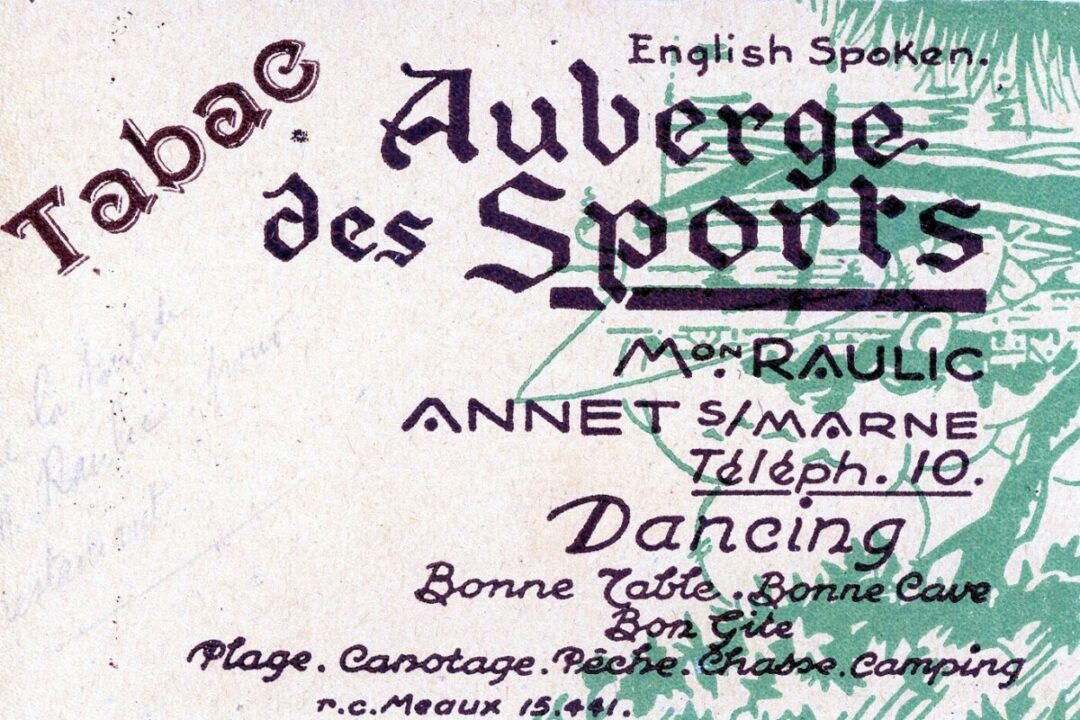 English Spoken.
Tabac
Auberge
des Sports
Mon. RAULIC
ANNET S/MARNE
Téléph. 10.
Dancing
Bonne Table. Bonne Cave
Bon Gite
Plage. Canotage. Pêche. Chasse. Camping
r.c. Meaux 15.441.
la
Raulic